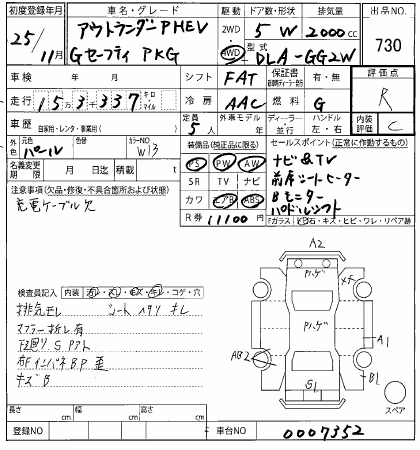 初度登録年月 車名・グレード 駆動 ドア数・形状 排気量 出品NO.
25/11月 アウトランダーPHEV 2WD 4WD 5 W 2000cc 730
Gセーフティ PKG 型式 DLA-GG2W
車検 年 月 シフト FAT 保証書 有・無 評価点
走行 153337 キロ マイル 冷房 AAC 燃料 G R
車歴 自家用・レンタ・事業用( ) 定員 5人 外車モデル ディーラー・並行 ハンドル 左・右 内装評価 C
外色 元色 パール 色替 カラーNO W13 装備品(純正品に限る) セールスポイント(正常に作動するもの)
名義変更期限 月 日 積載 t PS PW AW ナビ&TV
注意事項(欠品・修復・不具合箇所および状態) SR TV ナビ 前席シートヒーター
充電ケーブル欠 カワ エアB ABS Bモニター
R券 11100円 パドルシフト
Fガラス X・石・キズ・ヒビ・ワレ・リペア跡
検査員記入 内装 汚レ・スレ・キズ・キレ・コゲ・穴
排気モレ シート ヘタリ キレ
マフラー折レ有
下廻りSアクト
右Fインパネ BP 歪
キズB
A2
A1
AB2
B1
S1
スペア
長さ cm 幅 cm 高さ cm
登録NO 車台NO 0007352